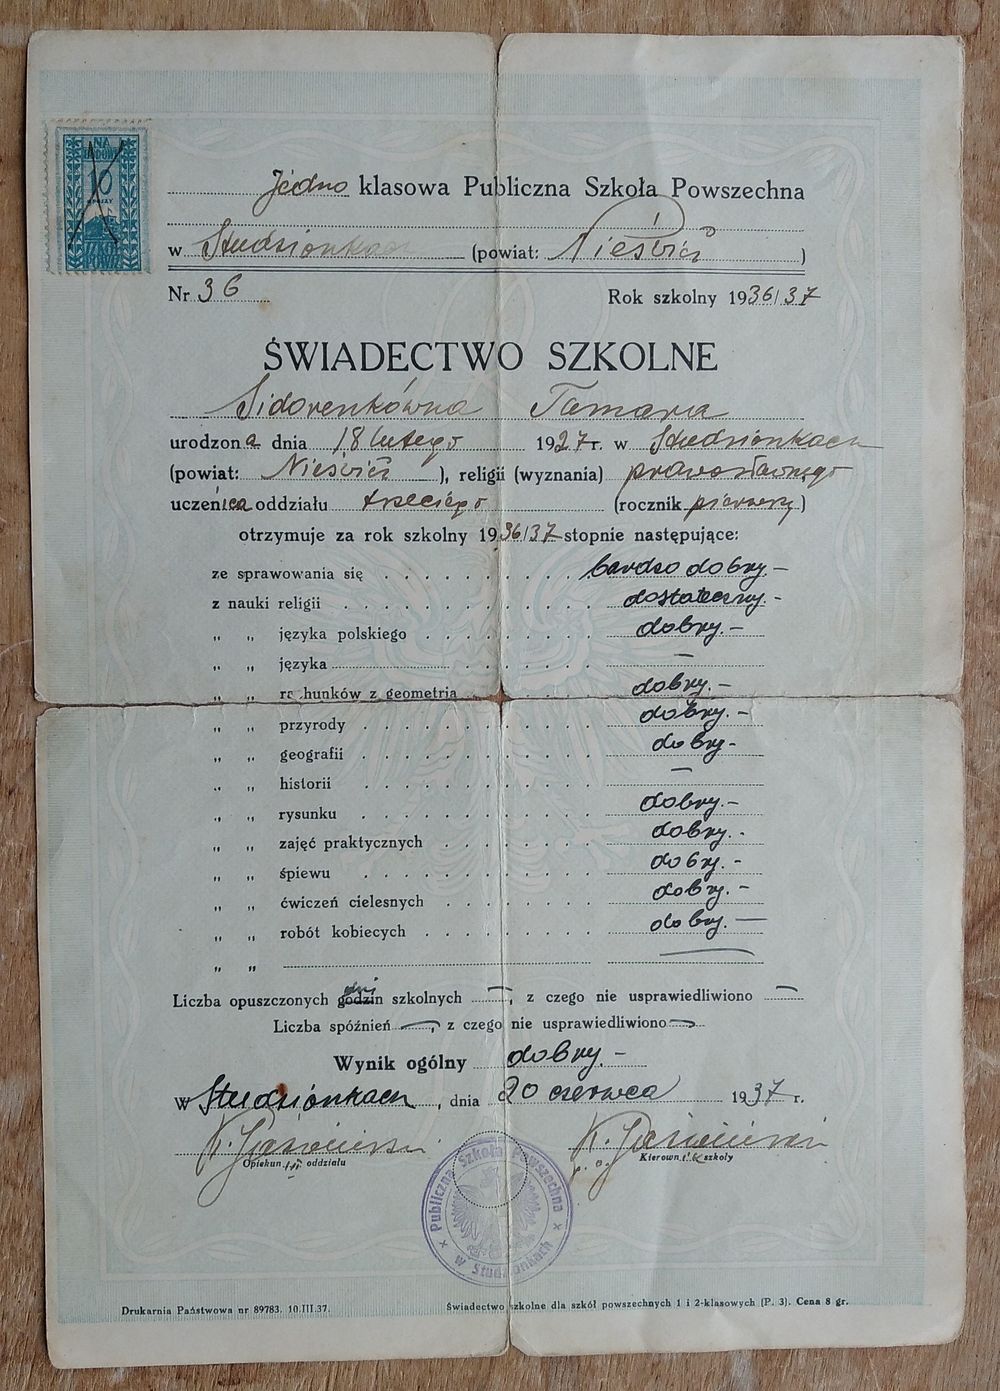 NA
BUDOWĘ
10
GROSZY
SZKÓŁ
POWSZ
Jedno klasowa Publiczna Szkoła Powszechna
w Studzionkach (powiat: Nieśwież)
Nr 36 Rok szkolny 1936/37
ŚWIADECTWO SZKOLNE
Sidorenkówna Tamara
urodzona dnia 18 lutego 1927 r. w Studzionkach
(powiat: Nieśwież), religii (wyznania) prawosławnego
uczenica oddziału trzeciego (rocznik pierwszy)
otrzymuje za rok szkolny 1936/37 stopnie następujące:
ze sprawowania się bardzo dobry.—
z nauki religii dostateczny.—
„ „ języka polskiego dobry.—
„ „ języka —
„ „ rachunków z geometrią dobry.—
„ „ przyrody dobry.—
„ „ geografii dobry—
„ „ historii —
„ „ rysunku dobry.—
„ „ zajęć praktycznych dobry.-
„ „ śpiewu dobry.-
„ „ ćwiczeń cielesnych dobry.—
„ „ robót kobiecych dobry.—
„ „ —
Liczba opuszczonych godzin dni szkolnych —, z czego nie usprawiedliwiono —
Liczba spóźnień —, z czego nie usprawiedliwiono —
Wynik ogólny dobry.—
w Studzionkach, dnia 20 czerwca 1937 r.
Opiekun oddziału
p. o. Kierownik szkoły
Publiczna Szkoła Powszechna
w Studzionkach
Drukarnia Państwowa nr 89783. 10.III.37. Świadectwo szkolne dla szkół powszechnych 1 i 2-klasowych (P. 3). Cena 8 gr.